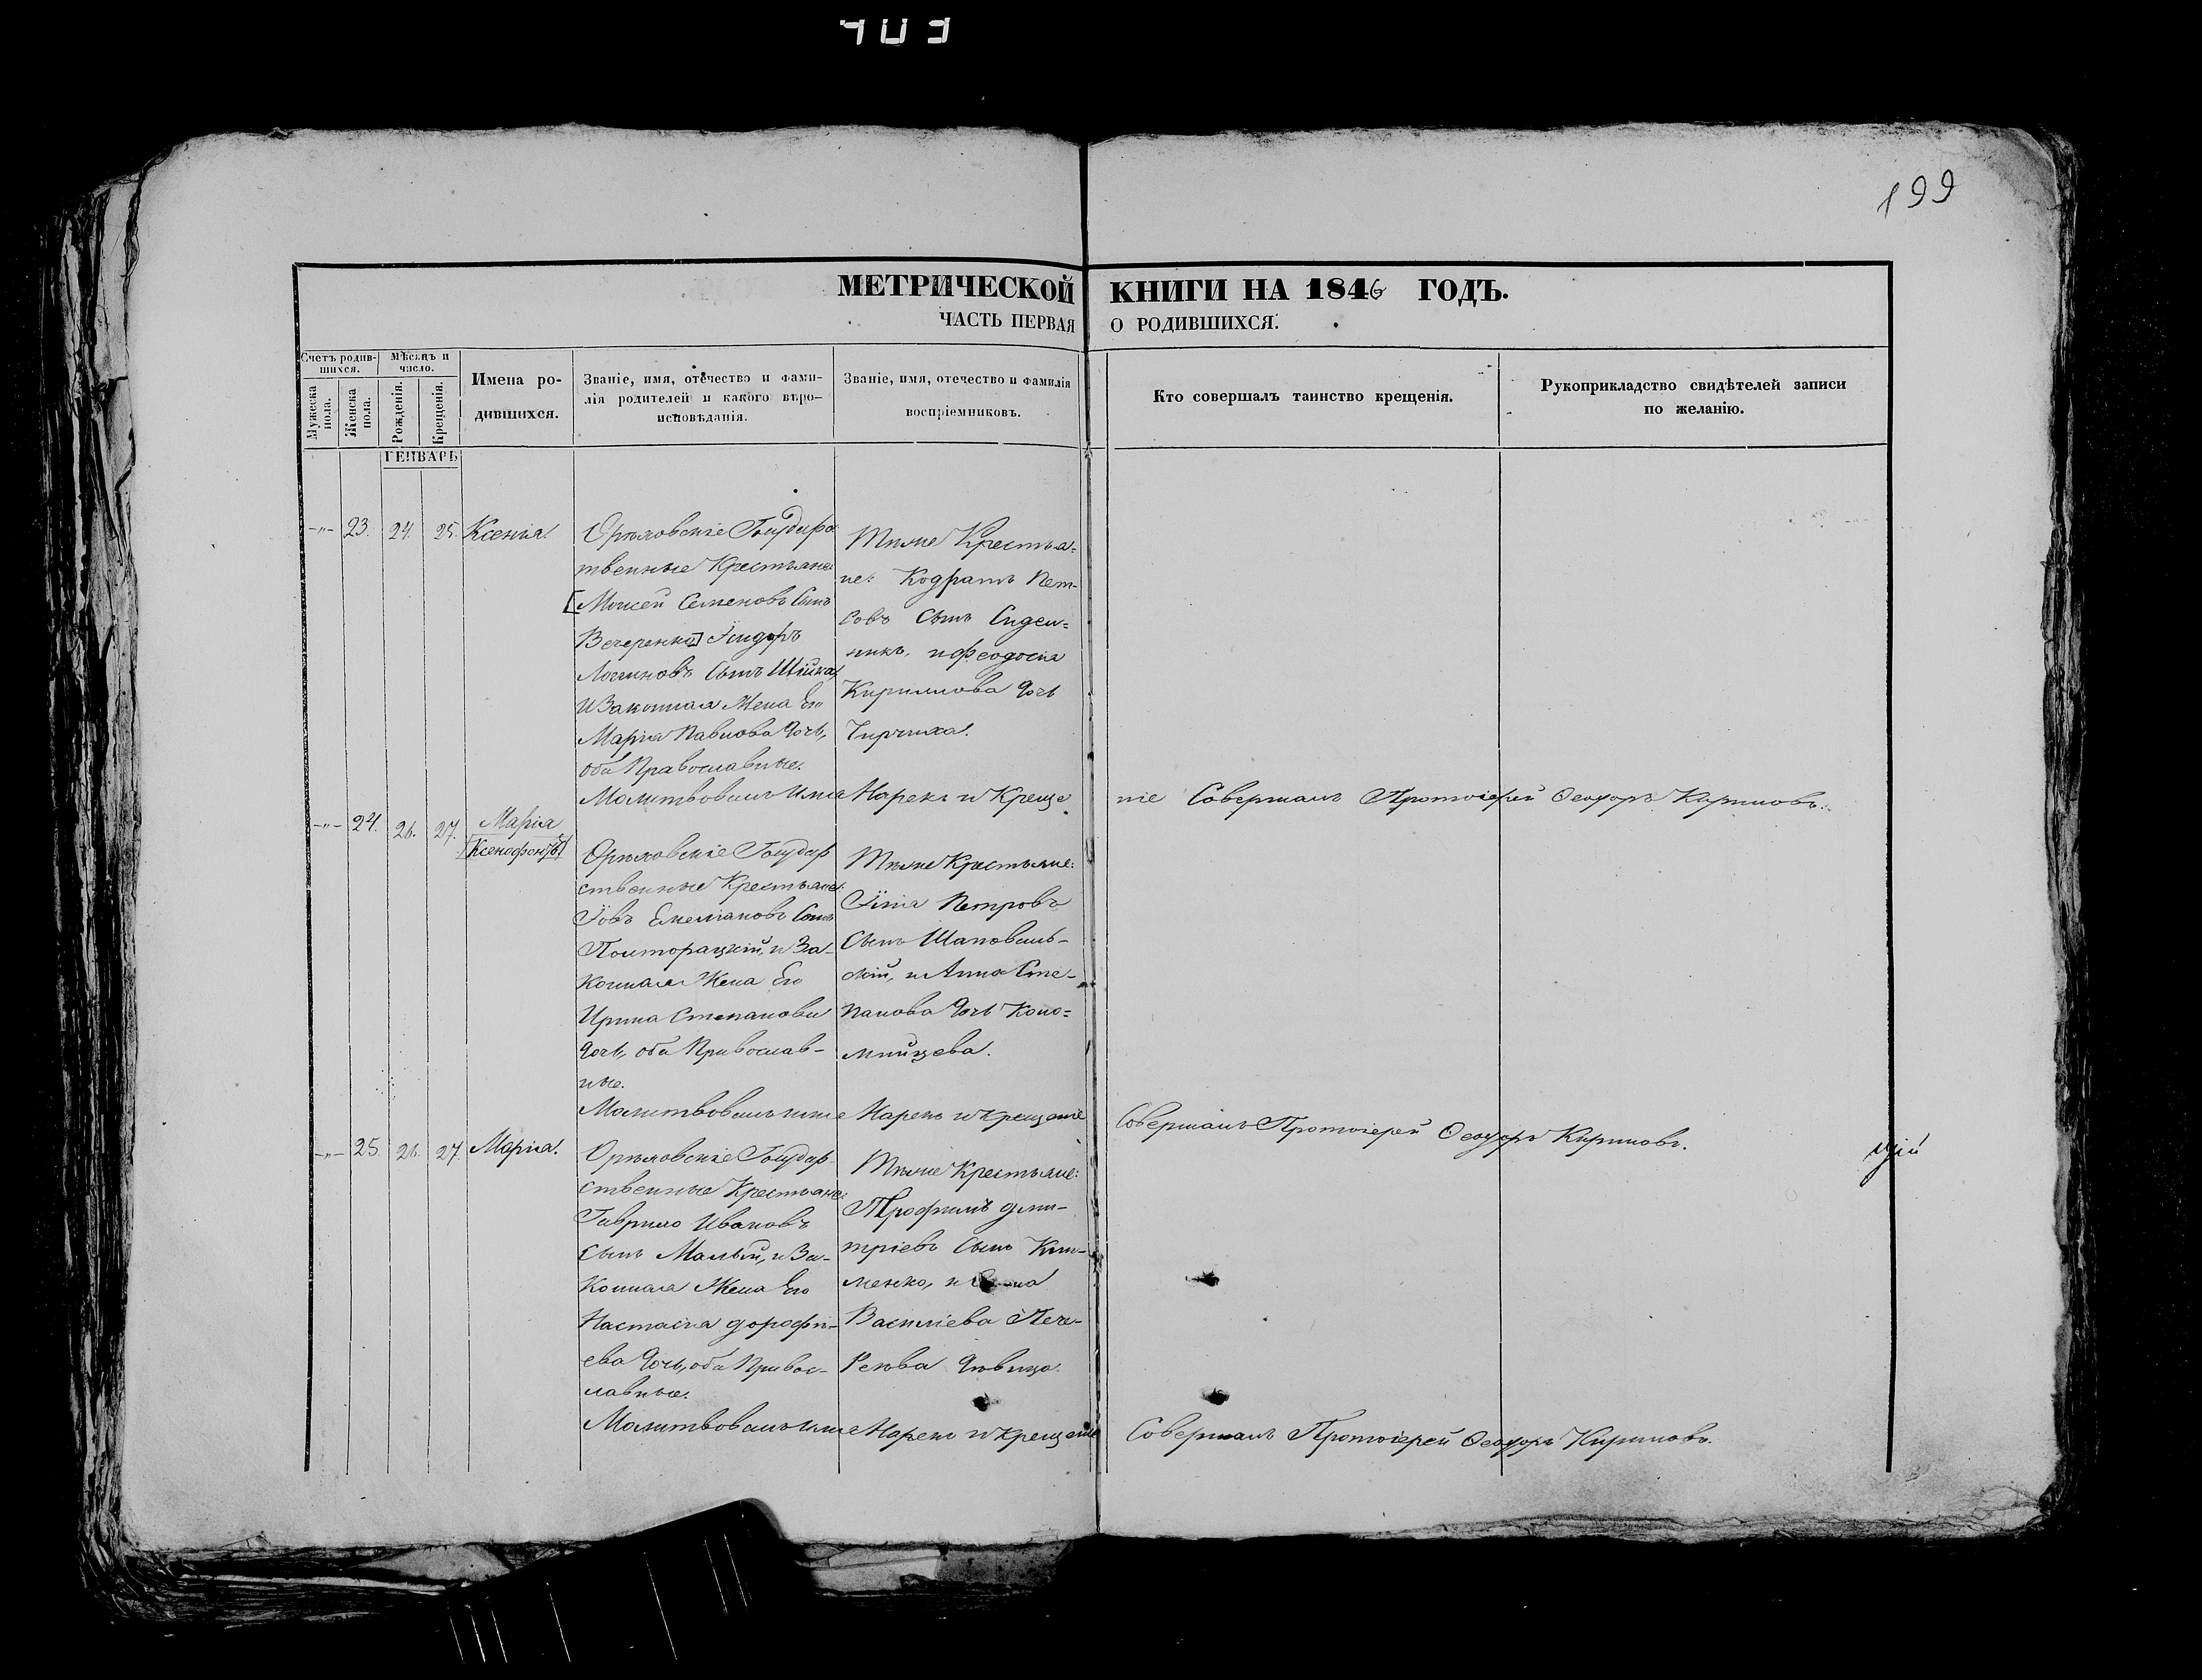 403
199
МЕТРИЧЕСКОЙ КНИГИ НА 1846 ГОДЪ.
ЧАСТЬ ПЕРВАЯ О РОДИВШИХСЯ.
Счетъ родив-
шихся.
Мужеска пола.
Женска пола.
Мѣсяцъ и
число.
Рожденія.
Крещенія.
Имена ро-
дившихся.
Званіе, имя, отечество и фами-
лія родителей и какого вѣро-
исповѣданія.
Званіе, имя, отечество и фамилія
воспріемниковъ.
Кто совершалъ таинство крещенія.
Рукоприкладство свидѣтелей записи
по желанію.
ГЕНВАРЬ
-„- 23. 24. 25. Ксенія.
Орѣловскіе Государс
твенные Крестьяне:
[Моисей Семеновъ Сынъ
Вечеренко] Ѵсидоръ
Логиновъ Сынъ
и Законная Жена Его
Марія Павлова дочь,
оба Православные.
Тѣже Крестья-
не: Кодратъ Пет-
ровъ Сынъ Сидел-
никъ, и феодосія
Кириллова дочь
Чирчиха.
Молитвовалъ имя Нарекъ и Креще ніе Совершалъ Протоіерей Ѳеодоръ Кириловъ.
-„- 24. 26. 27. Марія
[Ксенофонтъ]
Орѣловскіе Государ
ственные Крестьяне:
Іовъ Емеліановъ Сынъ
Полторацкій, и За-
конная Жена Его
Ирина Степанова
дочь, оба Православ-
ные.
Тѣже Крестьяне:
Ілія Петровъ
Сынъ Шаповаль-
скій, и Анна Сте-
панова дочь Коло-
мийцева.
Молитвовалъ имя Нарекъ и крещеніе Совершалъ Протоіерей Ѳеодоръ Кириловъ.
-„- 25. 26. 27. Марія.
Орѣловскіе Государ-
ственные Крестьяне:
Гаврило Ивановъ
Сынъ Малый, и За-
конная Жена Его
Настасія дорофѣ-
ева дочь, оба Правос-
лавные.
Тѣже Крестьяне:
Трофимъ дми-
тріевъ Сынъ Кли-
менко, и
Василіева Пече-
дѣвица.
Молитвовалъ имя Нарекъ и крещеніе Совершалъ Протоіерей Ѳеодоръ Кириловъ.
цій